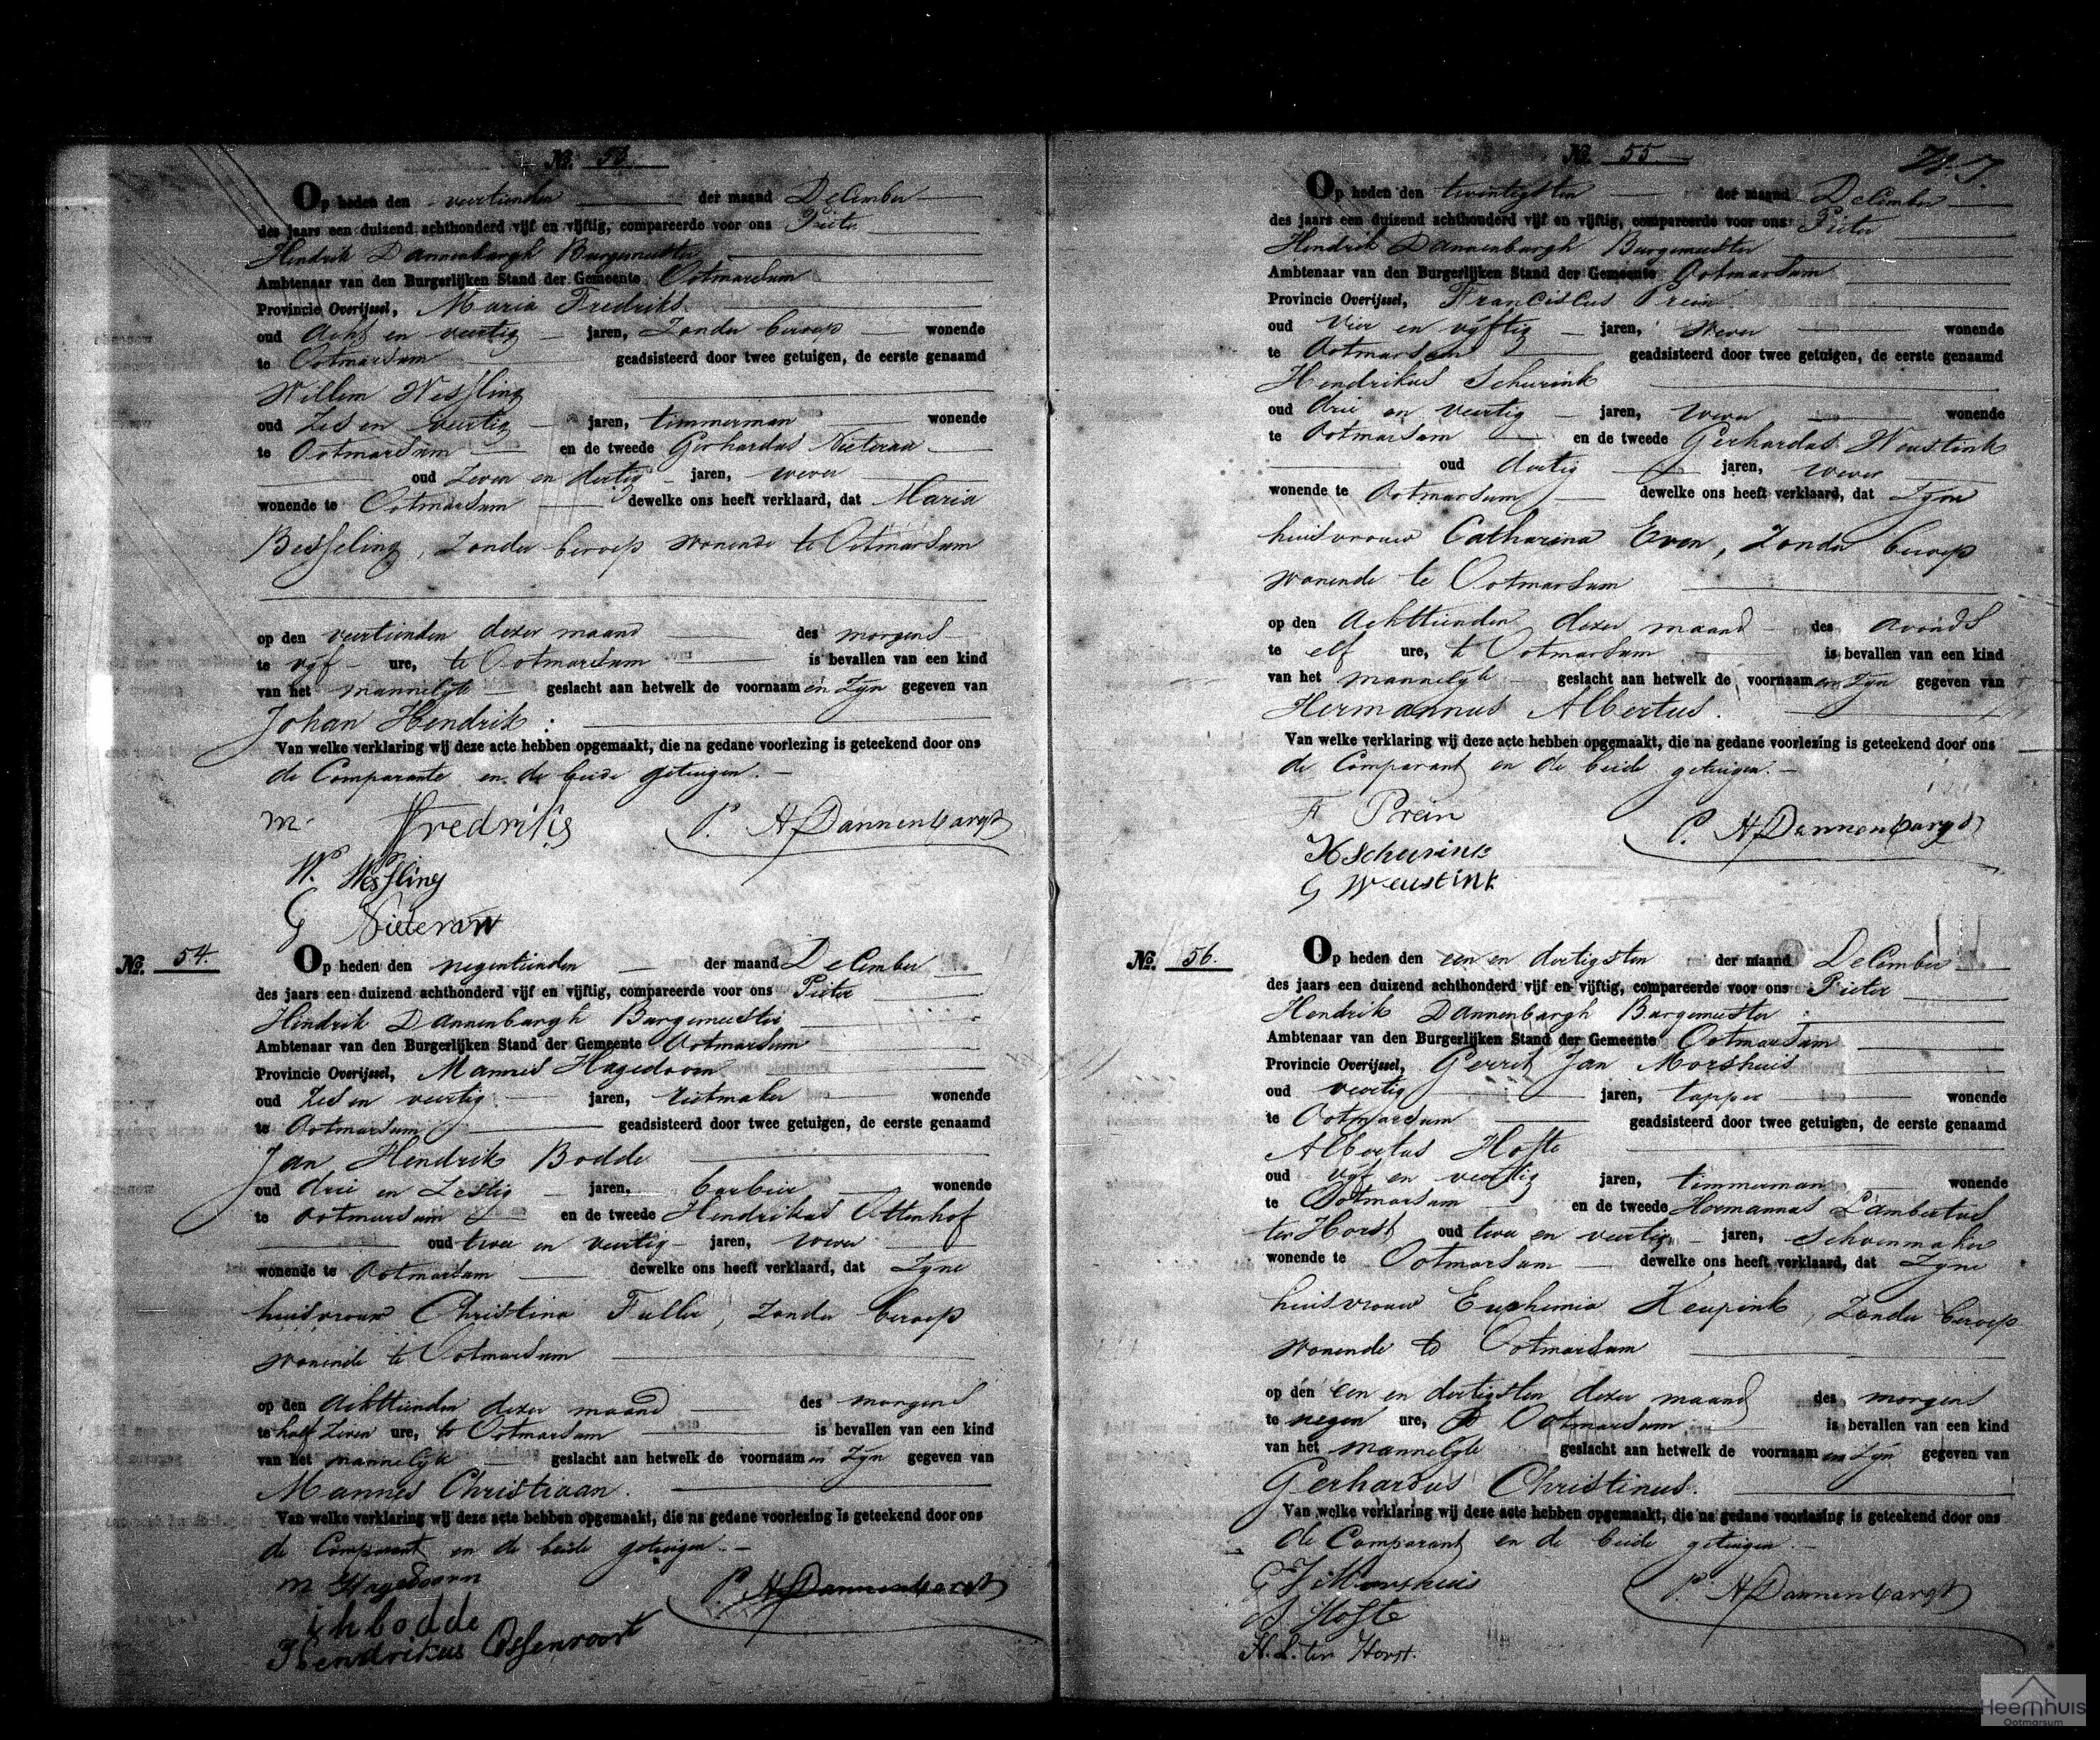 No. 53.
Op heden den veertienden der maand December
des jaars een duizend achthonderd vijf en vijftig, compareerde voor ons Pieter
Hendrik Dannenbargh Burgemeester
Ambtenaar van den Burgerlijken Stand der Gemeente Ootmarsum
Provincie Overijssel, Maria Fredriks
oud Acht en veertig jaren, Zonder beroep wonende
te Ootmarsum geadsisteerd door twee getuigen, de eerste genaamd
Willem Wessling
oud Zes en veertig jaren, timmerman wonende
te Ootmarsum en de tweede Gerhardus Nieteraa
oud Zeven en dertig jaren, wever
wonende te Ootmarsum dewelke ons heeft verklaard, dat Maria
Besseling, Zonder beroep wonende te Ootmarsum
op den veertienden dezer maand des morgens
te vijf ure, te Ootmarsum is bevallen van een kind
van het mannelijk geslacht aan hetwelk de voornaam en Zijn gegeven van
Johan Hendrik:
Van welke verklaring wij deze acte hebben opgemaakt, die na gedane voorlezing is geteekend door ons
de Comparante en de beide getuigen.
m. Fredriks P. H Dannenbargh
W. Wessling
G
No. 54.
Op heden den negentienden der maand December
des jaars een duizend achthonderd vijf en vijftig, compareerde voor ons Pieter
Hendrik Dannenbargh Burgemeester
Ambtenaar van den Burgerlijken Stand der Gemeente Ootmarsum
Provincie Overijssel, Mannes Hagedoorn
oud Zes en veertig jaren, rietmaker wonende
te Ootmarsum geadsisteerd door twee getuigen, de eerste genaamd
Jan Hendrik Bodde
oud drie en Zestig jaren, barbier wonende
te Ootmarsum en de tweede Hendrikus
oud twee en veertig jaren, wever
wonende te Ootmarsum dewelke ons heeft verklaard, dat Zijne
huisvrouw Christina Fuller, Zonder beroep
wonende te Ootmarsum
op den Achttienden dezer maand des morgens
te half Zeven ure, te Ootmarsum is bevallen van een kind
van het mannelijk geslacht aan hetwelk de voornaam en Zijn gegeven van
Mannes Christiaan.
Van welke verklaring wij deze acte hebben opgemaakt, die na gedane voorlezing is geteekend door ons
de Comparant en de beide getuigen.
m Hagedoorn P. H Dannenbargh
i h bodde
Hendrikus Ossenvoort
No. 55
Op heden den twintigsten der maand December
des jaars een duizend achthonderd vijf en vijftig, compareerde voor ons Pieter
Hendrik Dannenbargh Burgemeester
Ambtenaar van den Burgerlijken Stand der Gemeente Ootmarsum
Provincie Overijssel, Franciscus Prein
oud vier en vijftig jaren, Wever wonende
te Ootmarsum geadsisteerd door twee getuigen, de eerste genaamd
Hendrikus Schurink
oud drie en veertig jaren, wever wonende
te Ootmarsum en de tweede Gerhardus Weustink
oud dertig jaren, wever
wonende te Ootmarsum dewelke ons heeft verklaard, dat Zijne
huisvrouw Catharina Even, Zonder beroep
wonende te Ootmarsum
op den Achttienden dezer maand des avonds
te elf ure, te Ootmarsum is bevallen van een kind
van het mannelijk geslacht aan hetwelk de voornaam en Zijn gegeven van
Hermannus Albertus.
Van welke verklaring wij deze acte hebben opgemaakt, die na gedane voorlezing is geteekend door ons
de Comparant en de beide getuigen.
F Prein P. H Dannenbargh
H Scheurink
G Weustink
No. 56.
Op heden den een en dertigsten der maand December
des jaars een duizend achthonderd vijf en vijftig, compareerde voor ons Pieter
Hendrik Dannenbargh Burgemeester
Ambtenaar van den Burgerlijken Stand der Gemeente Ootmarsum
Provincie Overijssel, Gerrit Jan Morshuis
oud veertig jaren, tapper wonende
te Ootmarsum geadsisteerd door twee getuigen, de eerste genaamd
Albertus Hofte
oud vijf en veertig jaren, timmerman wonende
te Ootmarsum en de tweede Hermannus Lambertus
ter Horst oud twee en veertig jaren, Schoenmaker
wonende te Ootmarsum dewelke ons heeft verklaard, dat Zijne
huisvrouw Euphemia Keupink, Zonder beroep
wonende te Ootmarsum
op den een en dertigsten dezer maand des morgens
te negen ure, te Ootmarsum is bevallen van een kind
van het mannelijk geslacht aan hetwelk de voornaam en Zijn gegeven van
Gerhardus Christinus.
Van welke verklaring wij deze acte hebben opgemaakt, die na gedane voorlezing is geteekend door ons
de Comparant en de beide getuigen.
G J Morshuis P. H Dannenbargh
A Hofte
H. L. ter Horst.
Heemhuis
Ootmarsum